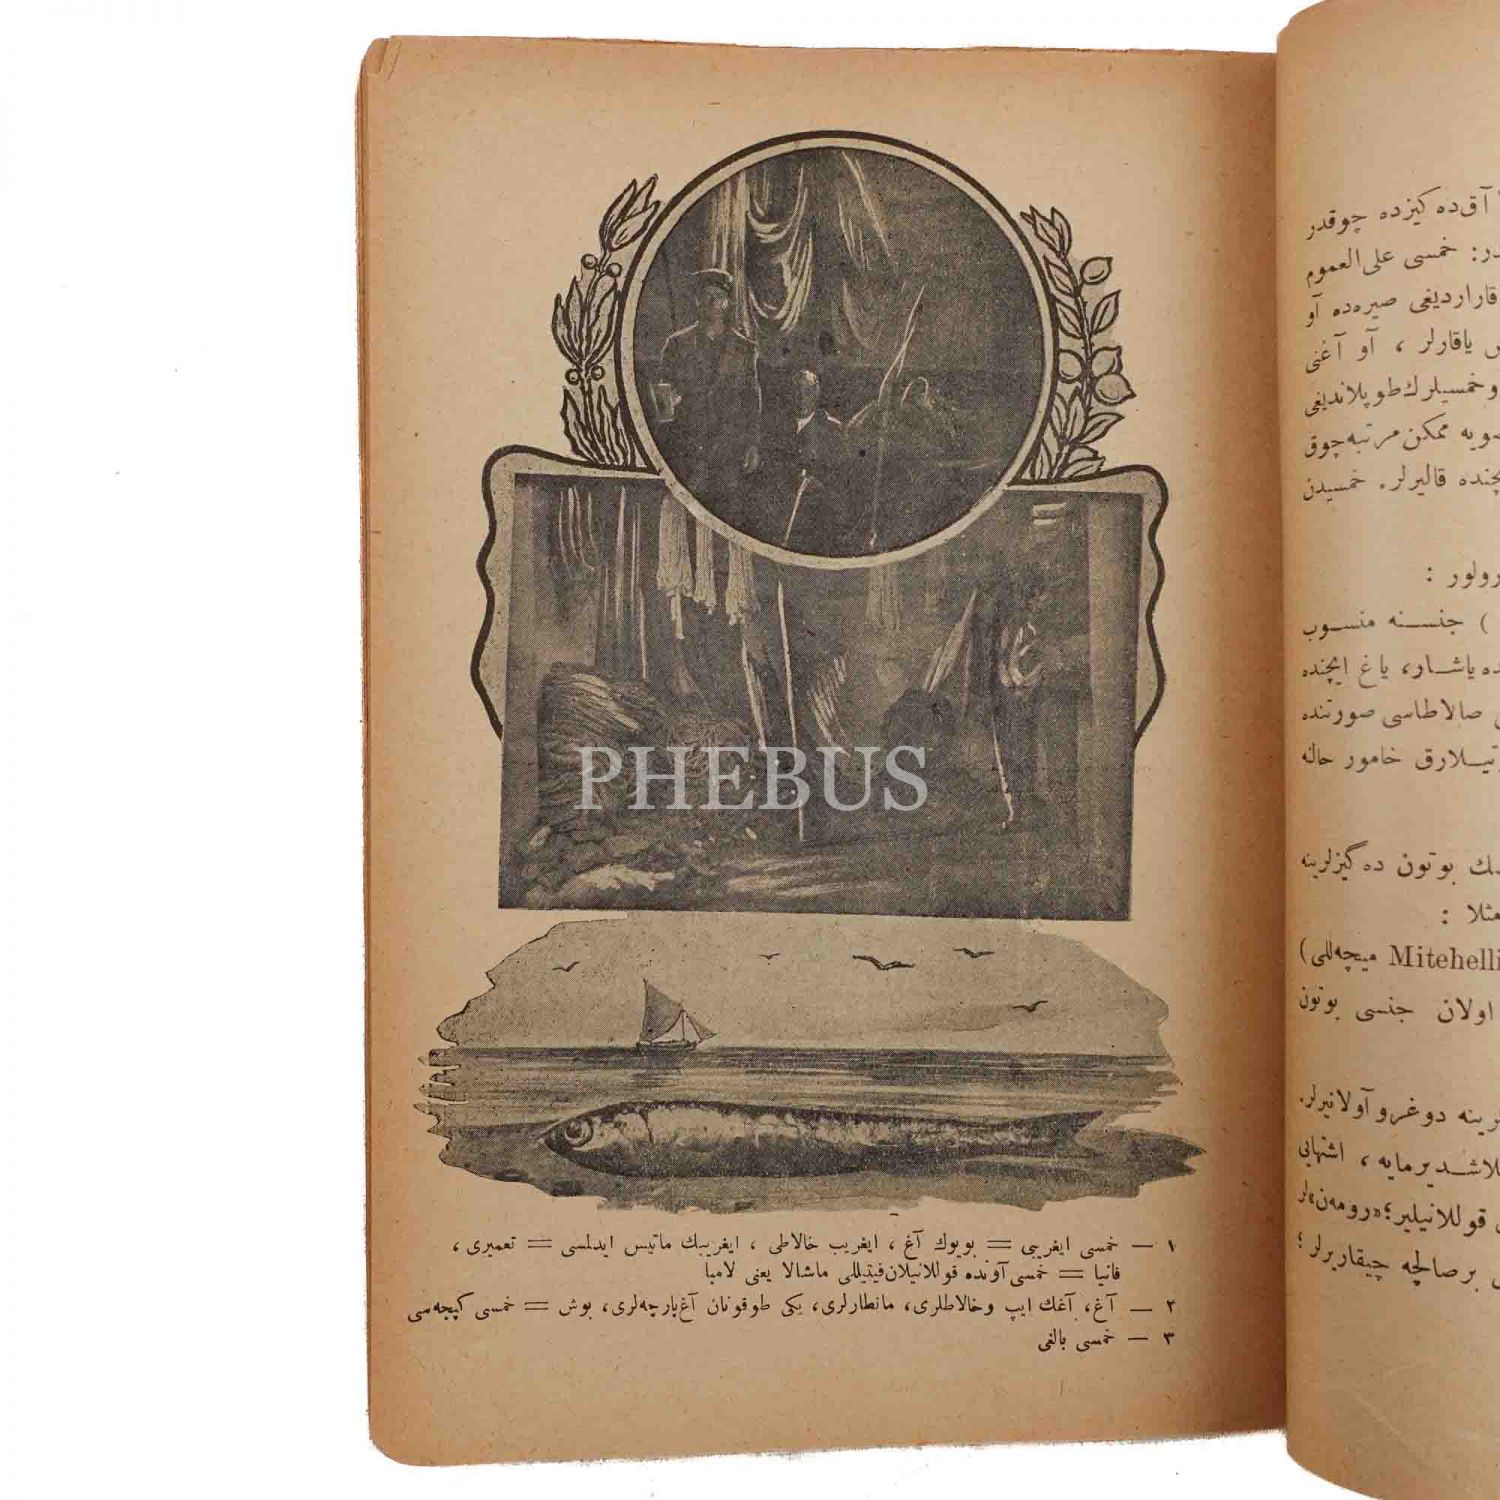 PHEBUS
١ — خمسی ایغریبی = بویوك آغ ، ایغریب خالاطی ، ایغریبك ماتیس ایدلسی = تعمیری ،
فانیا = خمسی آونده قوللانیلان فیتیللی ماشالا یعنی لامبا
٢ — آغ، آغك ایپ وخالاطلری، مانطارلری، یكی طوقونان آغ پارچه‌لری، بوش = خمسی كپچه‌سی
٣ — خمسی بالغی
آق ده كیزده چوقدر
در: خمسی علی العموم
قاراردیغی صیره‌ده آو
یاقارلر ، آو آغنی
وخمسیلرك طوپلاندیغی
ممكن مرتبه چوق
ایچنده قالیرلر. خمسیدن
اولور :
) جنسنه منسوب
ده یاشار، یاغ ایچنده
صالاطاسی صورتنده
خامور حالنه
بوتون ده گیزلرینه
مثلا :
Mitehelli میچه‌للی)
اولان جنسی بوتون
دوغرو آولانیرلر.
اشتهایی
قوللانیلیر؛ «رومه‌ن» لر
برصالچه چیقاریرلر ؛